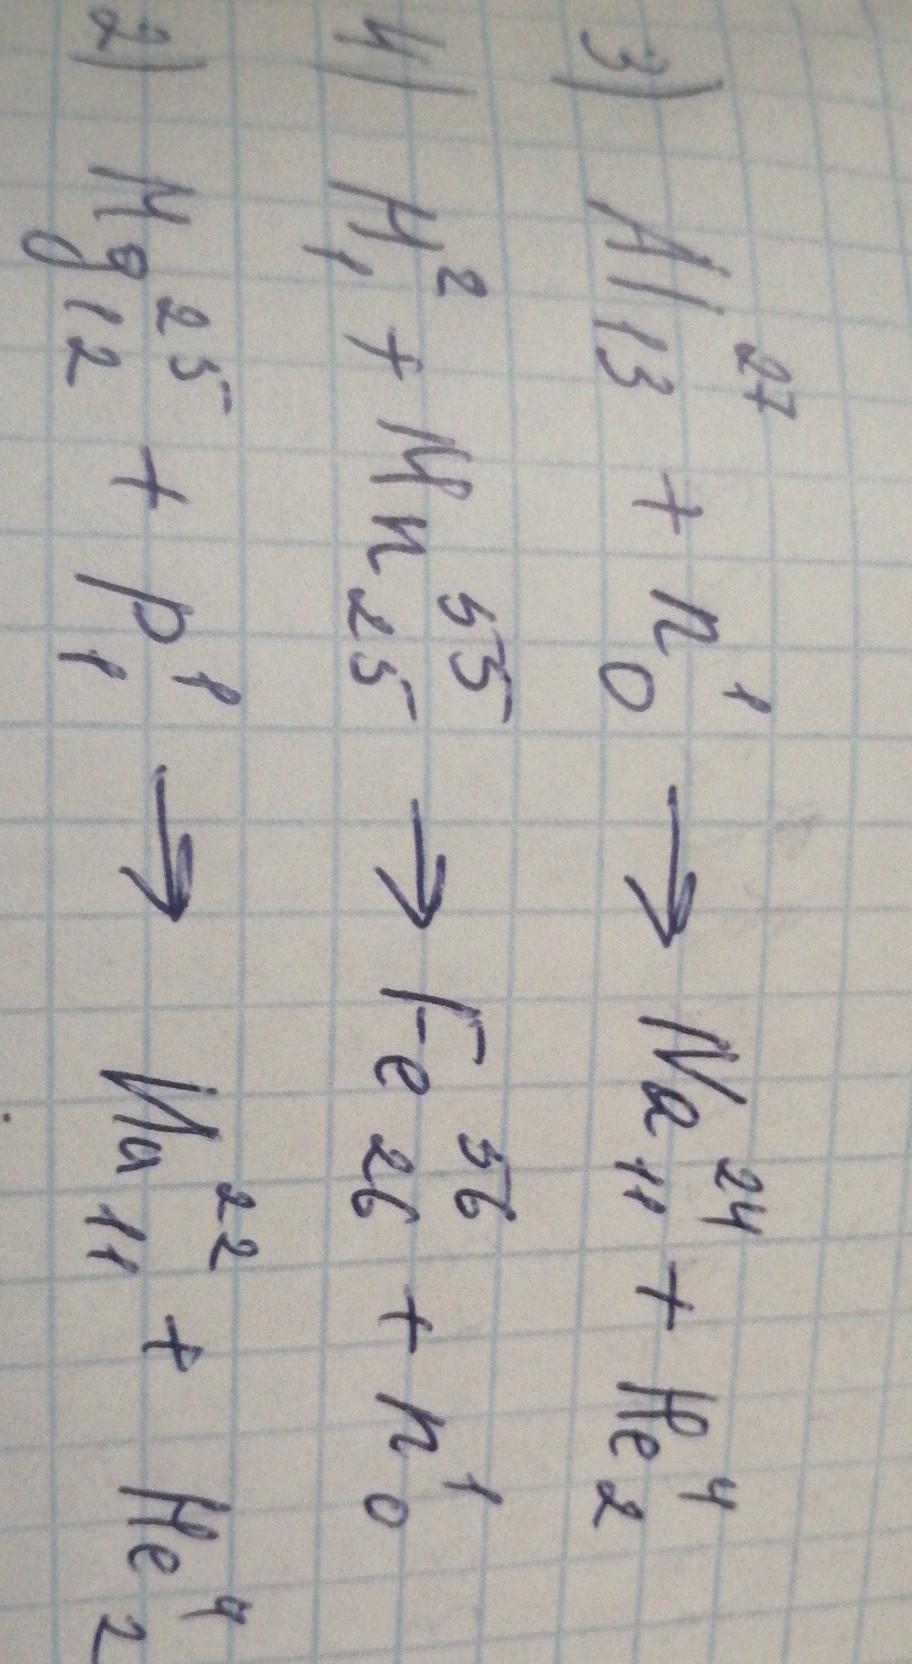 3) Al₁₃²⁷ + n₀¹ → Na₁₁²⁴ + He₂⁴
4) H₁² + Mn₂₅⁵⁵ → Fe₂₆⁵⁶ + n₀¹
2) Mg₁₂²⁵ + p₁¹ → Na₁₁²² + He₂⁴